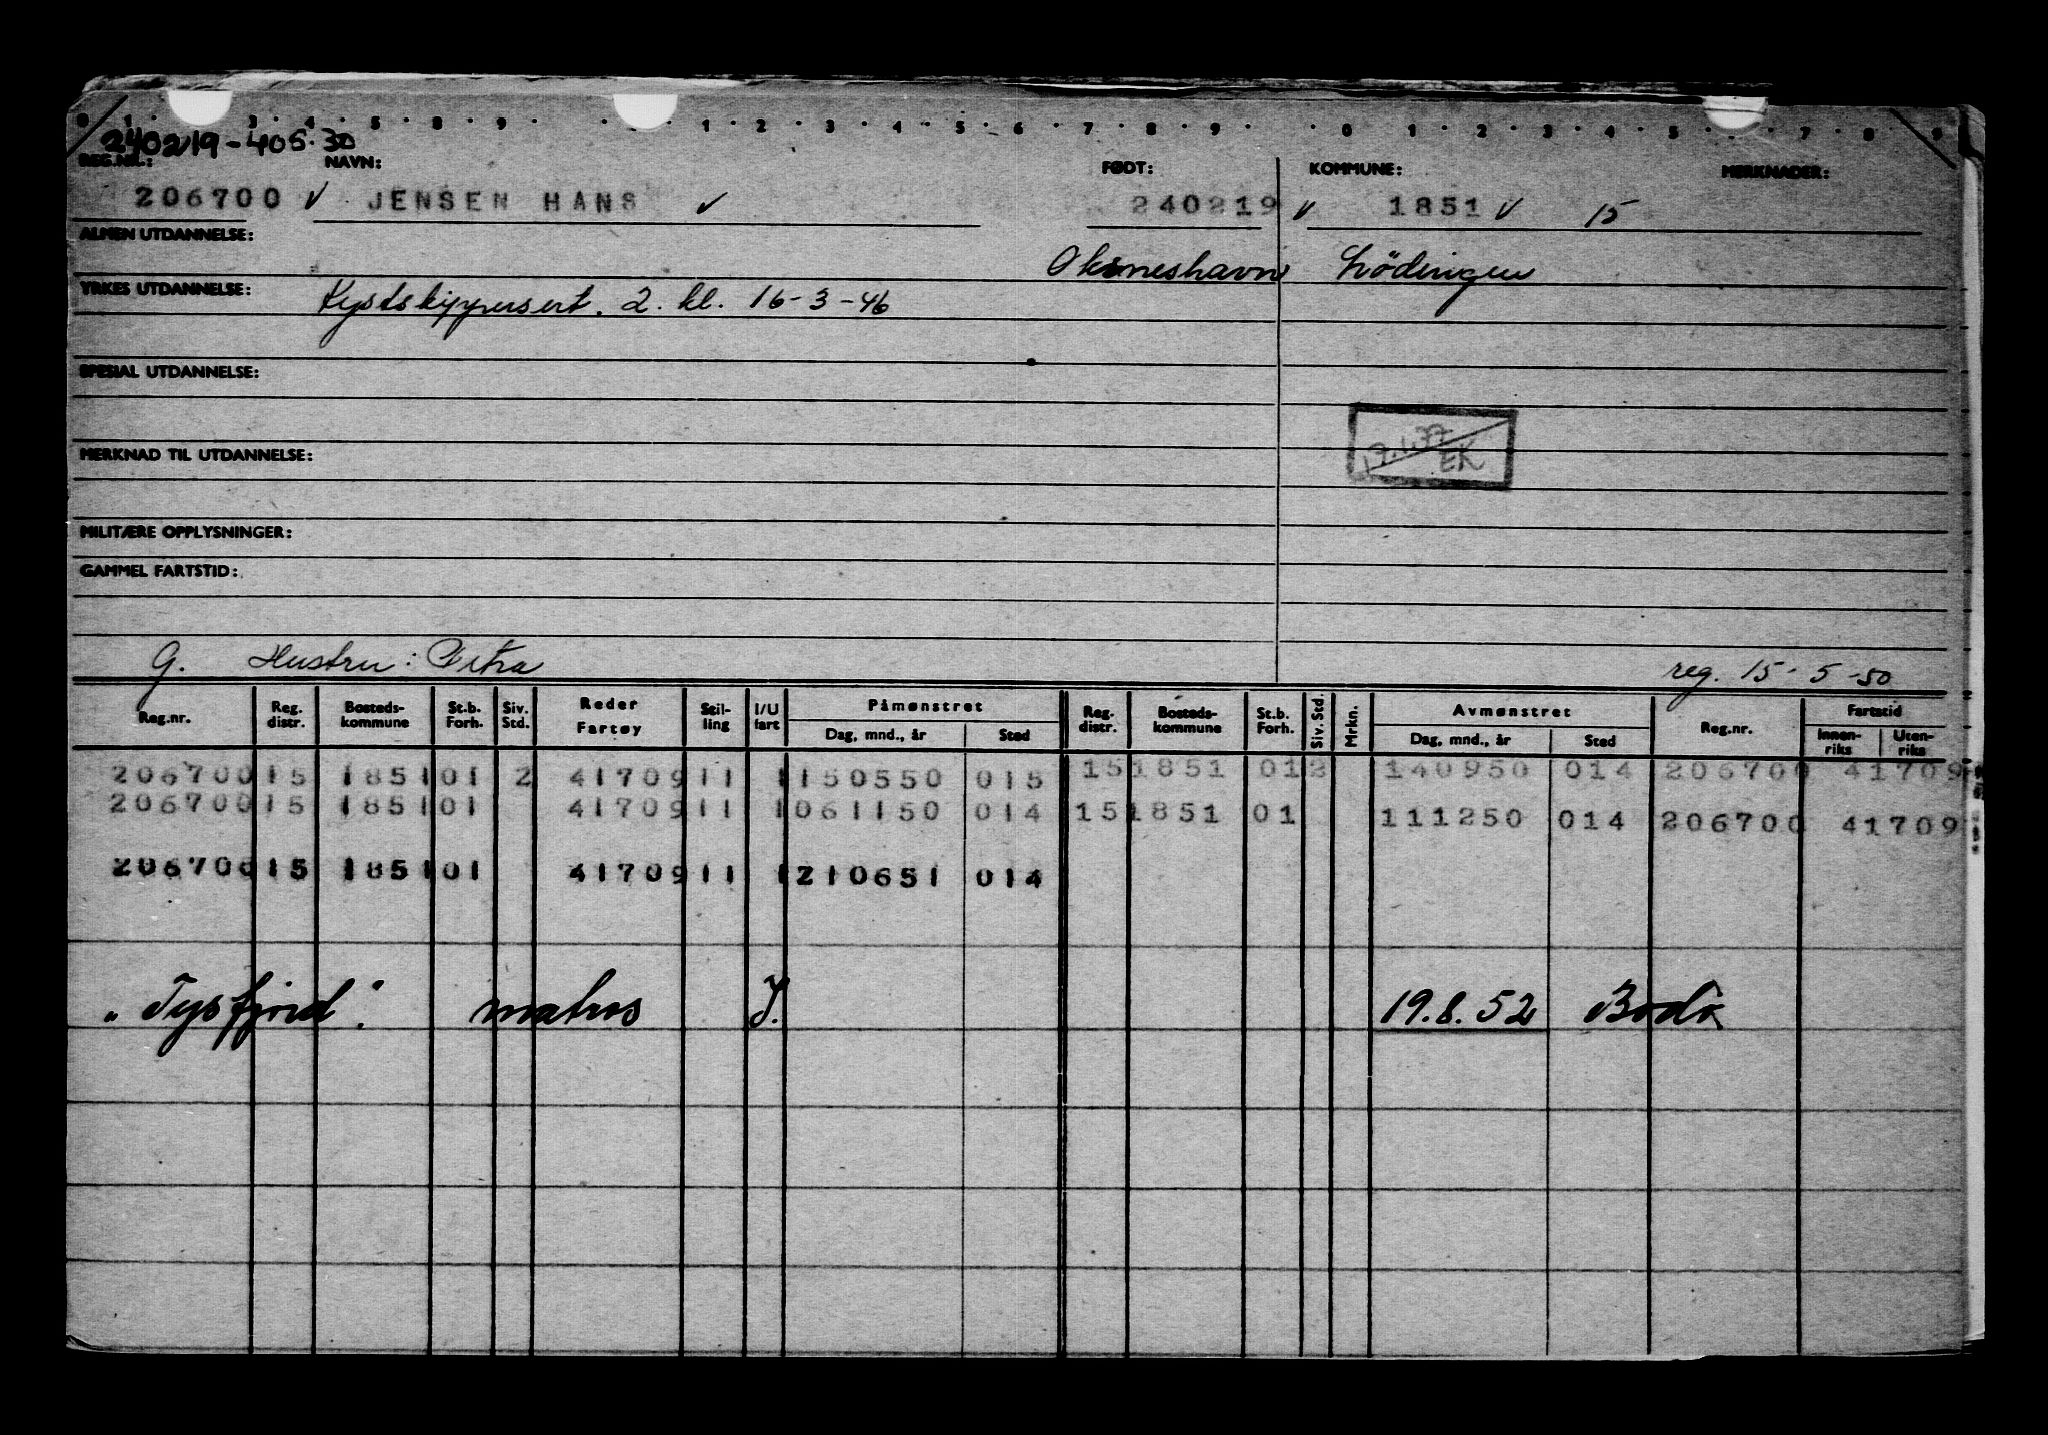 0 1 · · 3 · 4 · 5 · 8 · 9 · · · 1 · 2 · 3 · 4 · 5 · 6 · 7 · 8 · 9 · · 0 · 1 · 2 · 3 · 4 · 5 · · 7 · 8 · 9
240219-405.30
REG.NR.: NAVN: FØDT: KOMMUNE: MERKNADER:
206700 ✓ JENSEN HANS ✓ 240219 ✓ 1851 ✓ 15
ALMEN UTDANNELSE:
Oksneshavn Lödingen
YRKES UTDANNELSE: Kystskippersert. 2. kl. 16-3-46
SPESIAL UTDANNELSE:
MERKNAD TIL UTDANNELSE:
EK
MILITÆRE OPPLYSNINGER:
GAMMEL FARTSTID:
G. Hustru: Petra reg. 15-5-50
Reg.nr. Reg. distr. Bosteds-kommune St.b. Forh. Siv. Std. Reder Fartøy Stil-ling I/U fart Påmønstret Dag, mnd., år Sted Reg. distr. Bosteds-kommune St.b. Forh. Siv. Std. Mrkn. Avmønstret Dag, mnd., år Sted Reg.nr. Fartstid Innen-riks Uten-riks
206700 15 1851 01 2 41709 11 1 150550 015 15 1851 01 2 140950 014 206700 41709
206700 15 1851 01 41709 11 1 061150 014 15 1851 01 111250 014 206700 41709
206700 15 1851 01 41709 11 1 210651 014
"Tysfjord". matros I. 19.8.52 Bodø